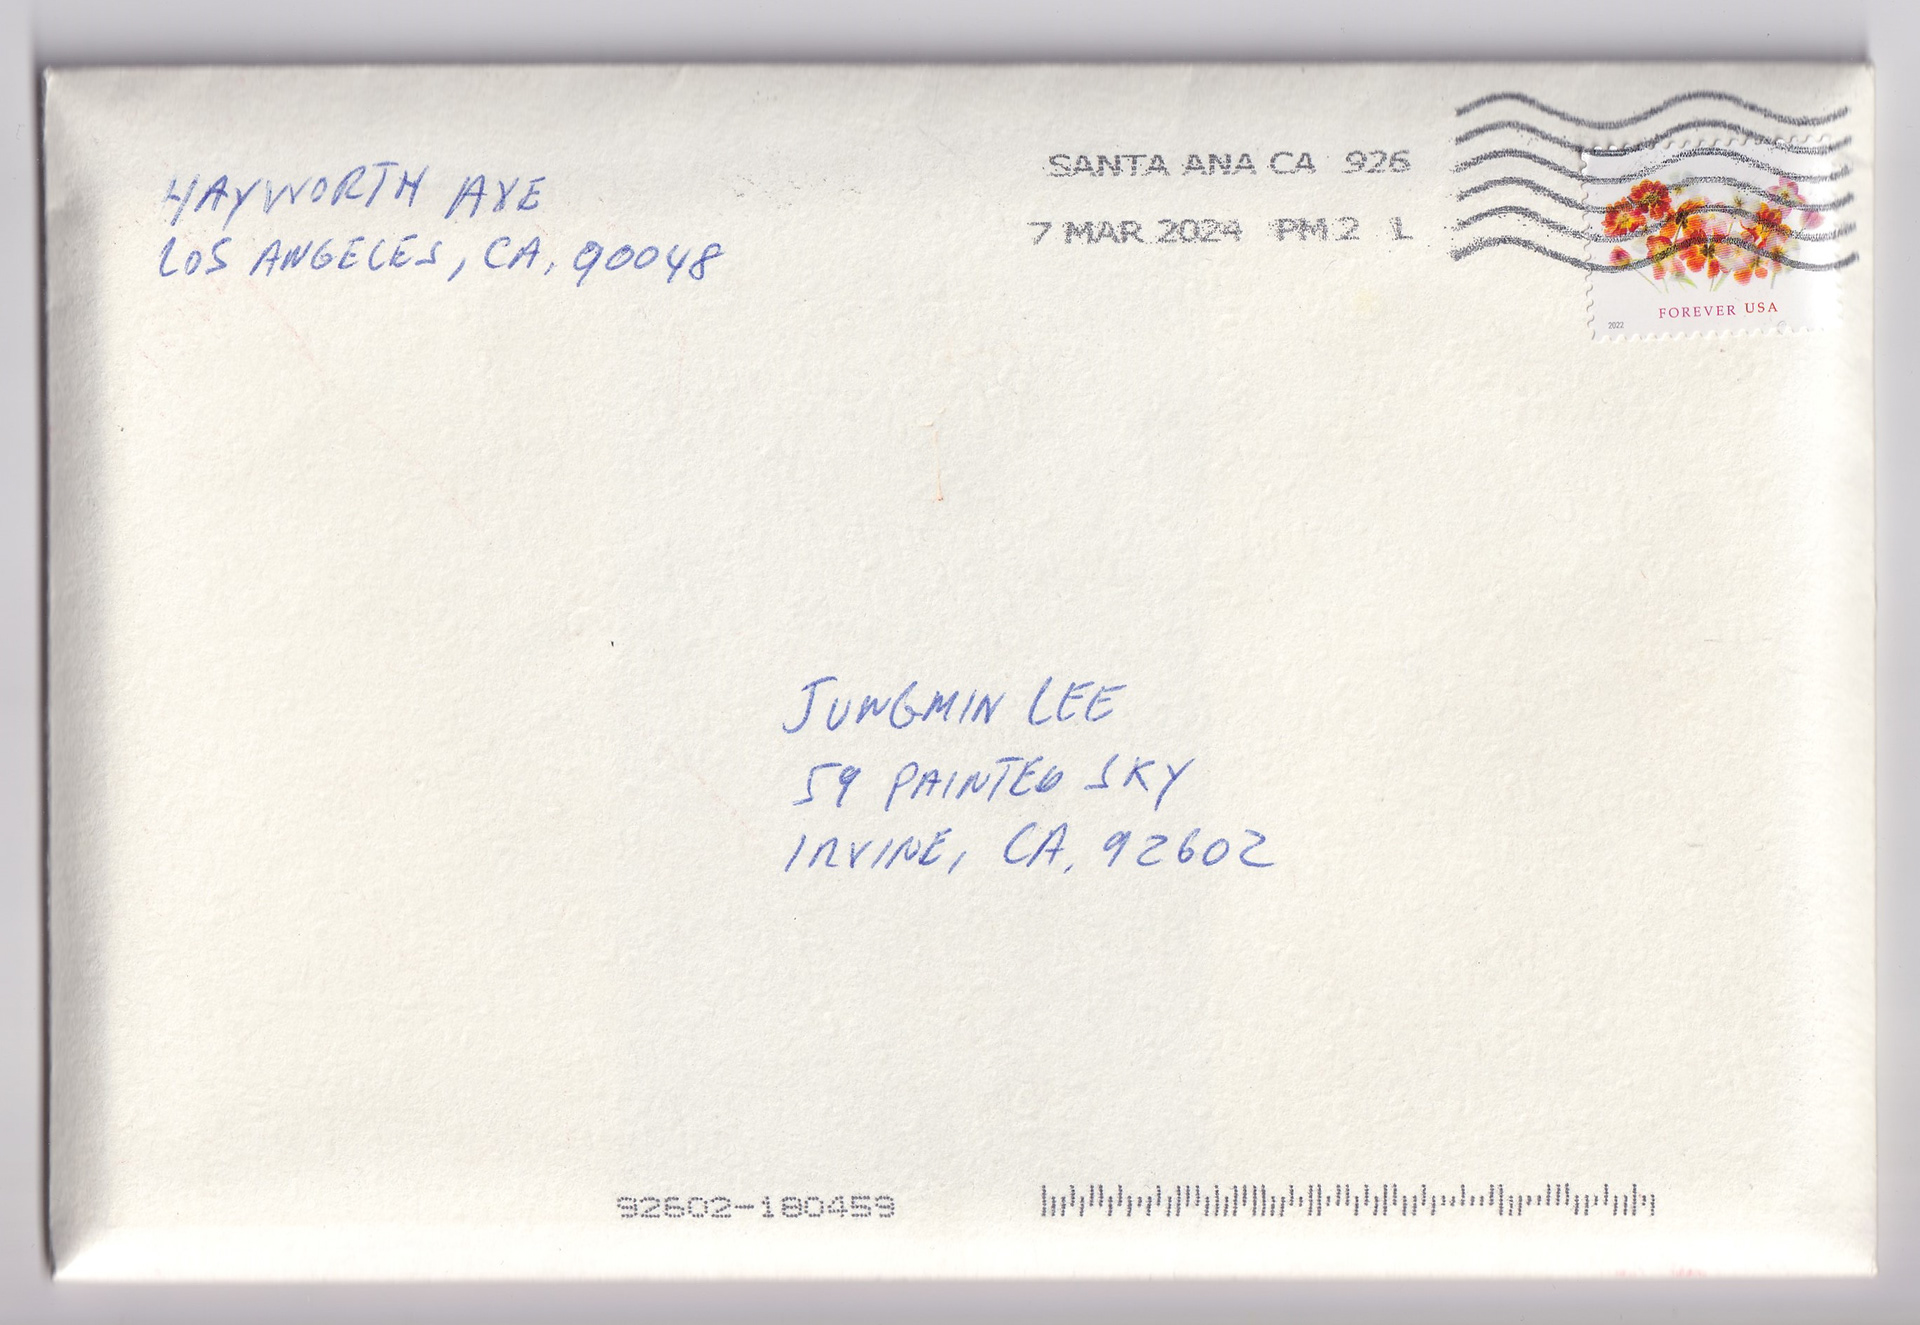 HAYWORTH AVE
LOS ANGELES, CA, 90048
SANTA ANA CA 926
7 MAR 2024 PM 2 L
FOREVER USA
2022
JUNGMIN LEE
59 PAINTED SKY
IRVINE, CA, 92602
92602-180459